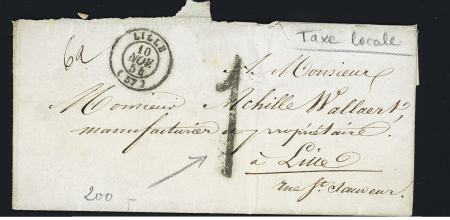 Taxe locale
6a
LILLE
10
NOV.
54
(57)
à Monsieur
Monsieur Achille Wallaert,
manufacturier propriétaire
1
à Lille
rue St Sauveur.
200